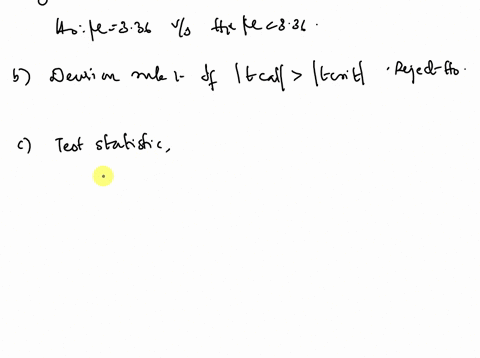 H₀: μ = 3.36 v/s H₁: μ < 3.36.
b) Decision rule :- If |tcal| > |tcrit| . Reject H₀.
c) Test statistic,